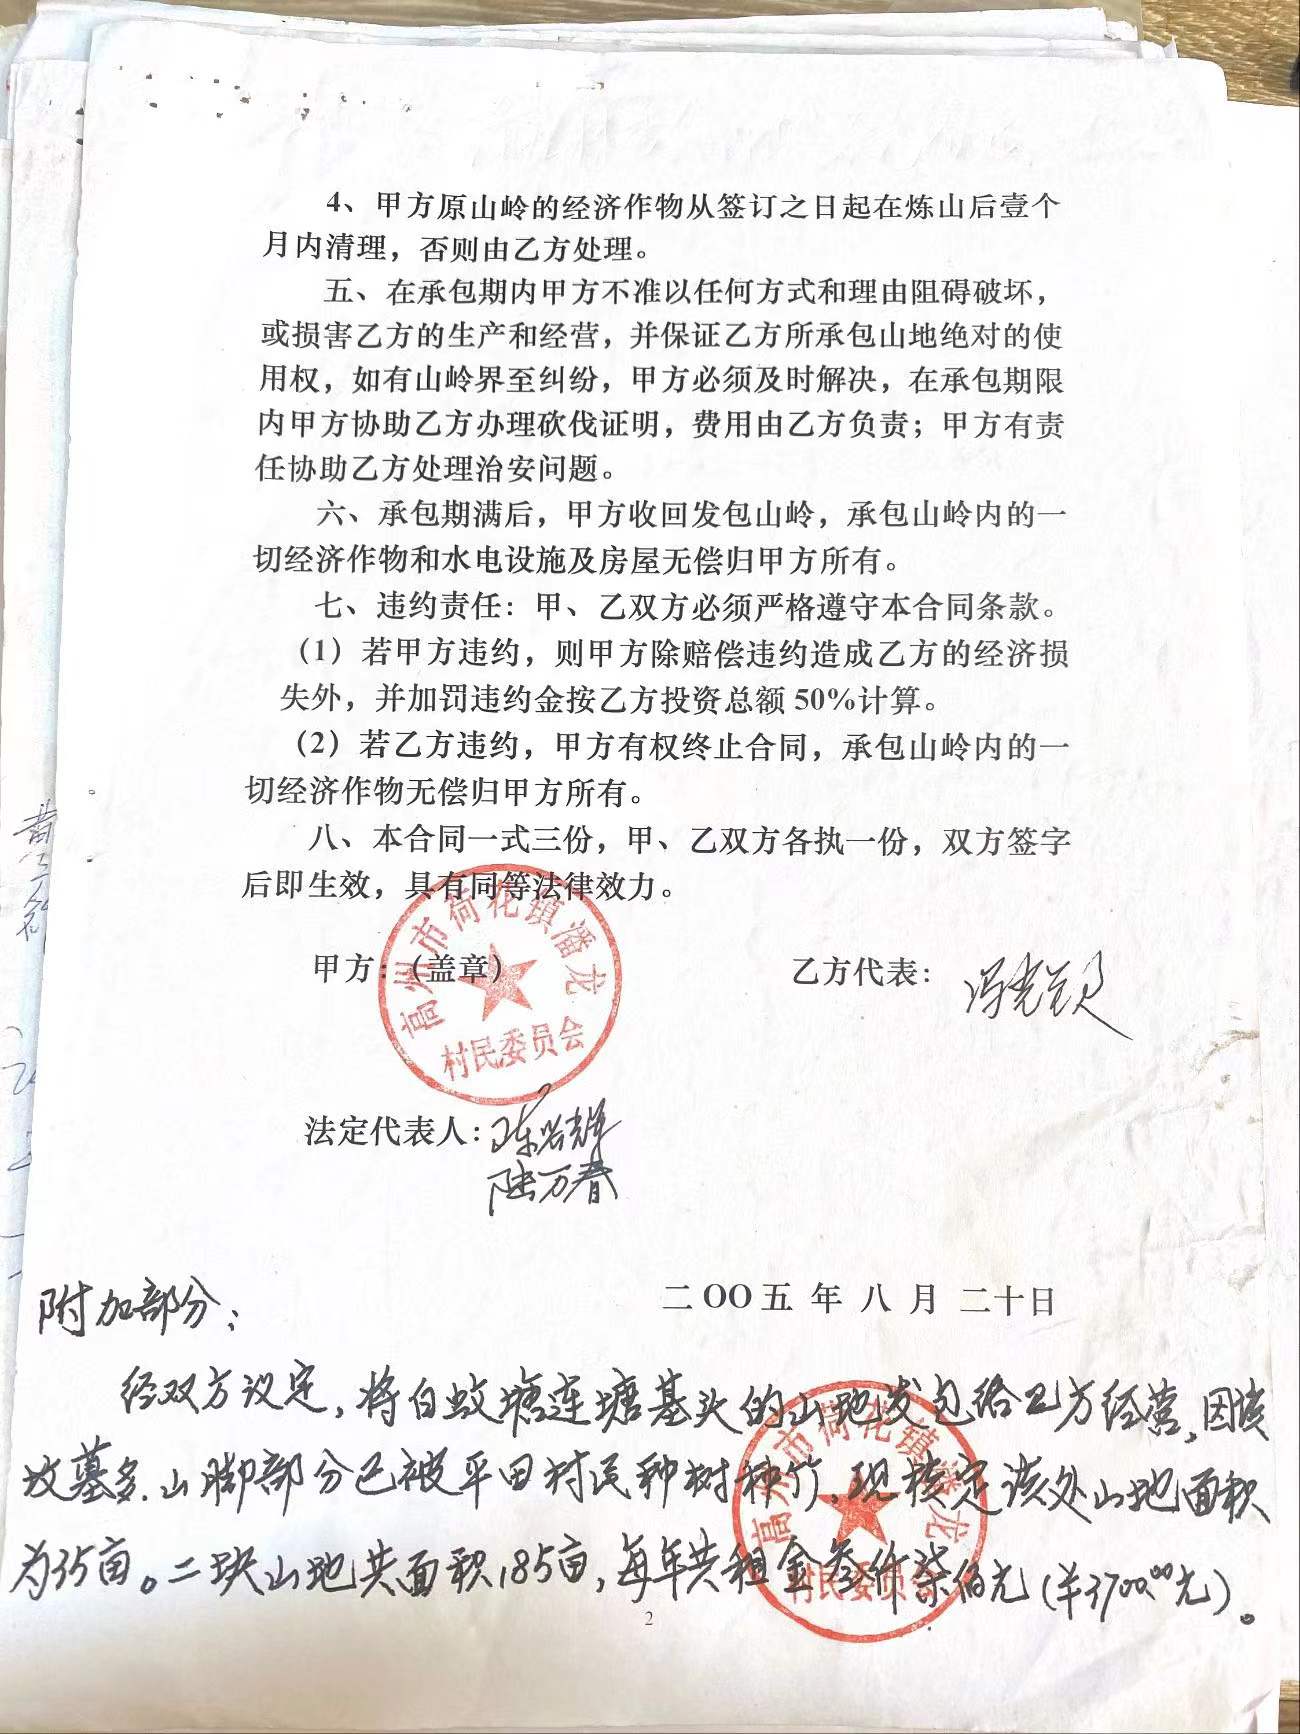 4、甲方原山岭的经济作物从签订之日起在炼山后壹个
月内清理，否则由乙方处理。
五、在承包期内甲方不准以任何方式和理由阻碍破坏，
或损害乙方的生产和经营，并保证乙方所承包山地绝对的使
用权，如有山岭界至纠纷，甲方必须及时解决，在承包期限
内甲方协助乙方办理砍伐证明，费用由乙方负责；甲方有责
任协助乙方处理治安问题。
六、承包期满后，甲方收回发包山岭，承包山岭内的一
切经济作物和水电设施及房屋无偿归甲方所有。
七、违约责任：甲、乙双方必须严格遵守本合同条款。
（1）若甲方违约，则甲方除赔偿违约造成乙方的经济损
失外，并加罚违约金按乙方投资总额50%计算。
（2）若乙方违约，甲方有权终止合同，承包山岭内的一
切经济作物无偿归甲方所有。
八、本合同一式三份，甲、乙双方各执一份，双方签字
后即生效，具有同等法律效力。
高州市荷花镇潘龙
村民委员会
甲方：（盖章）
乙方代表：
法定代表人：
陆万春
二OO五年八月二十日
附加部分：
经双方议定，将白蚁塘连塘基头的山地发包给乙方经营，因该
坟墓多，山脚部分已被平田村民种树种竹，现核定该处山地面积
为35亩。二块山地共面积185亩，每年共租金叁仟柒佰元（￥3700.00元）。
高州市荷花镇潘龙
村民委员会
2